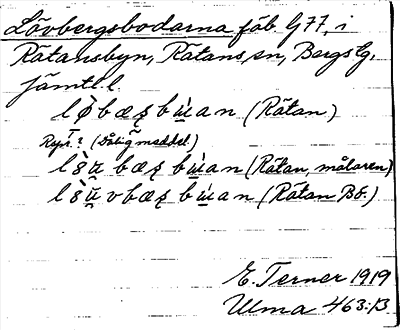 Lövbergsbodarna fäb. G77, i
Rätansbyn, Rätans sn, Bergs tg,
Jämtl. l.
lø̀bæʂ bɯ̀an (Rätan)
Rep.? (Dålig meddel.)
lɞ̀ṳ bæʂ bɯ̀an (Rätan, målaren)
lɞ̀ṳ vbæʂ bɯ̀an (Rätan Bf.)
E. Terner 1919
Ulma 463:13